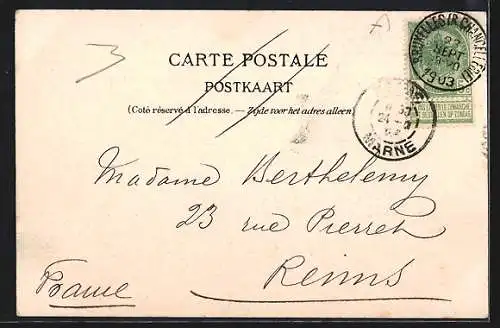 CARTE POSTALE
POSTKAART
(Côté réservé à l'adresse. — Zijde voor het adres alleen)
BRUXELLES (R. CHANCELLERIE)
SEPT
1903
MARNE
Madame Berthelemy
23 rue Pierret
Reims
France